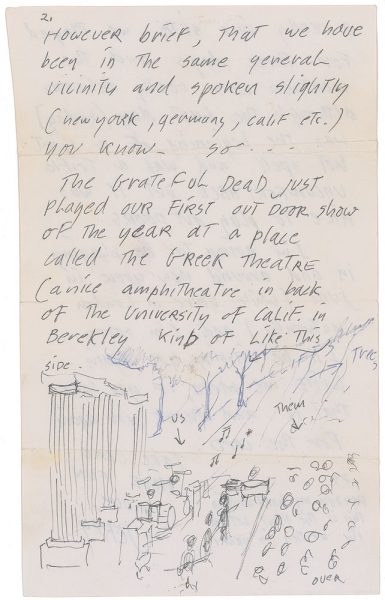 2.
However brief, that we have
been in the same general
vicinity and spoken slightly
(new york, germany, calif etc.)
you know— so - - - -
The Grateful Dead just
played our first out door show
of the year at a place
called the Greek Theatre
(a nice amphitheatre in back
of the University of Calif. in
Berekley kind of like this
side.
Trees
us
Them
over